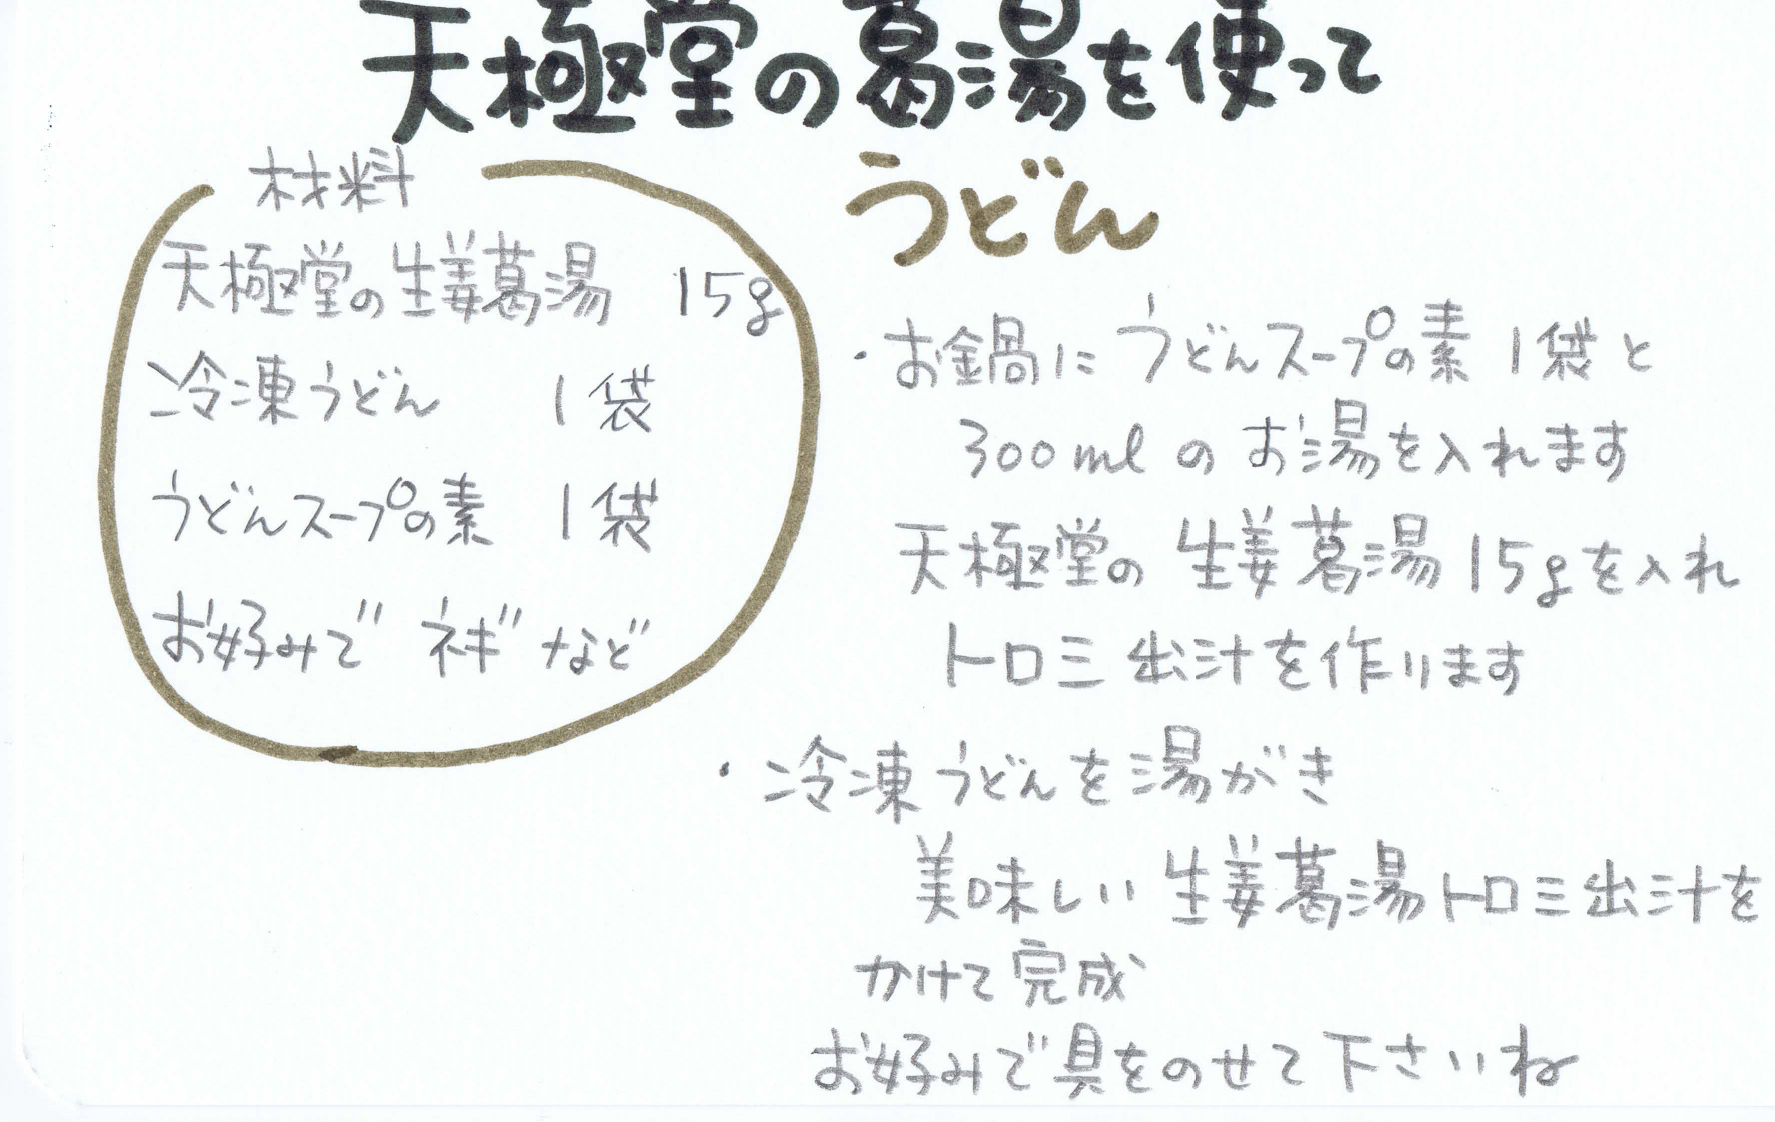 天極堂の葛湯を使って
うどん
材料
天極堂の生姜葛湯 15g
冷凍うどん 1袋
うどんスープの素 1袋
お好みで ネギなど
・お鍋にうどんスープの素 1袋と
300mlのお湯を入れます
天極堂の生姜葛湯15gを入れ
トロミ出汁を作ります
・冷凍うどんを湯がき
美味しい生姜葛湯トロミ出汁を
かけて完成
お好みで具をのせて下さいね